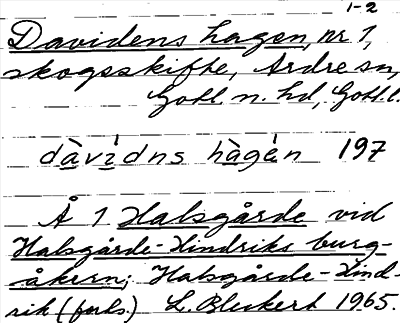 1-2
Davidens hagen, nr 1,
skogsskifte, Ardre sn,
Gotl. n. hd, Gotl. l.
dàvi̇dns hàgèn 197
Å 1 Halsgårde vid
Halsgårde-Hindriks burg-
åkern; Halsgårde-Hind-
rik (forts.) L. Bleckert 1965.